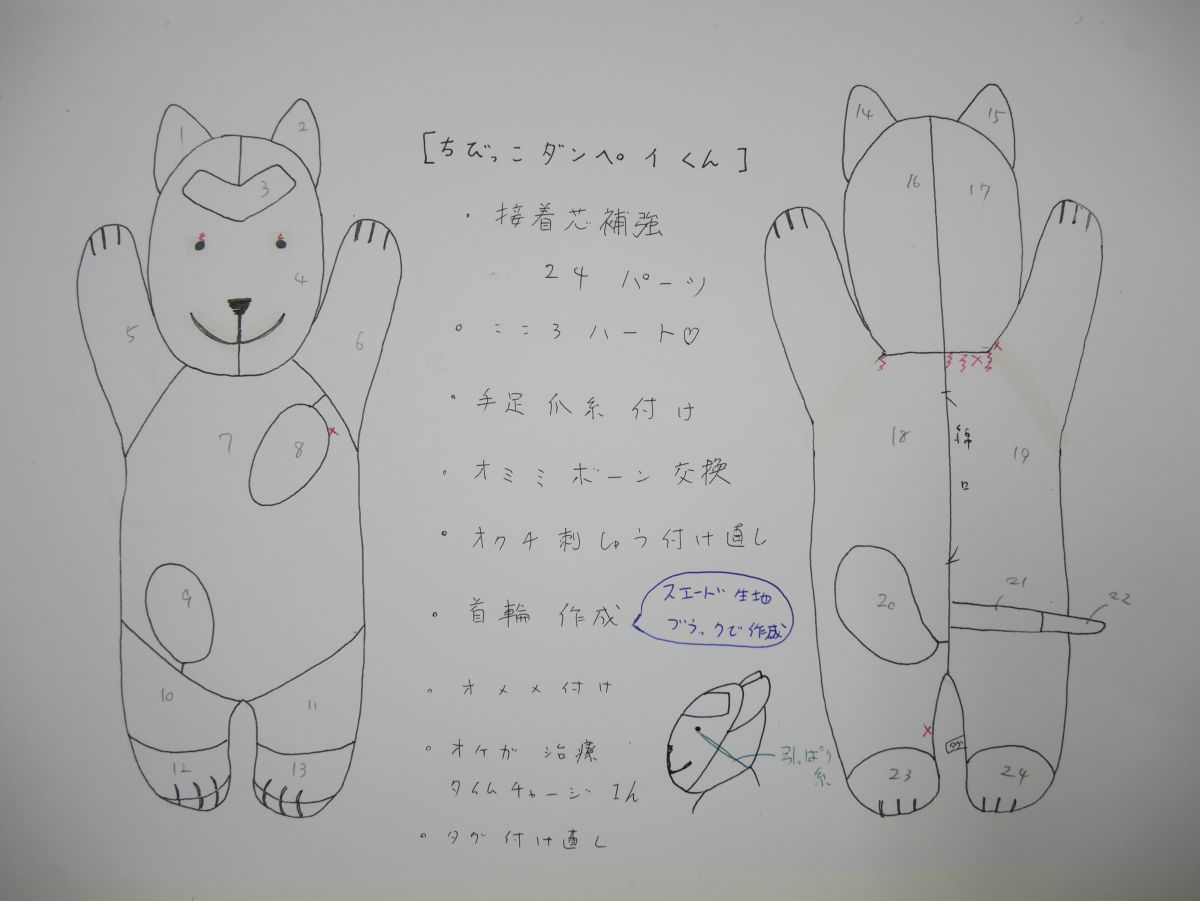 [ちびっこ ダンペイくん]
・接着芯補強
24 パーツ
・こころハート♡
・手足爪糸付け
・オミミボーン交換
・オクチ刺しゅう付け直し
・首輪 作成
スエード生地
ブラックで作成
・オメメ付け
・オケガ 治療
タイムチャージ
・タグ付け直し
引っぱり
糸
1
2
3
4
5
6
7
8
9
10
11
12
13
14
15
16
17
18
綿
口
19
20
21
22
タグ
23
24